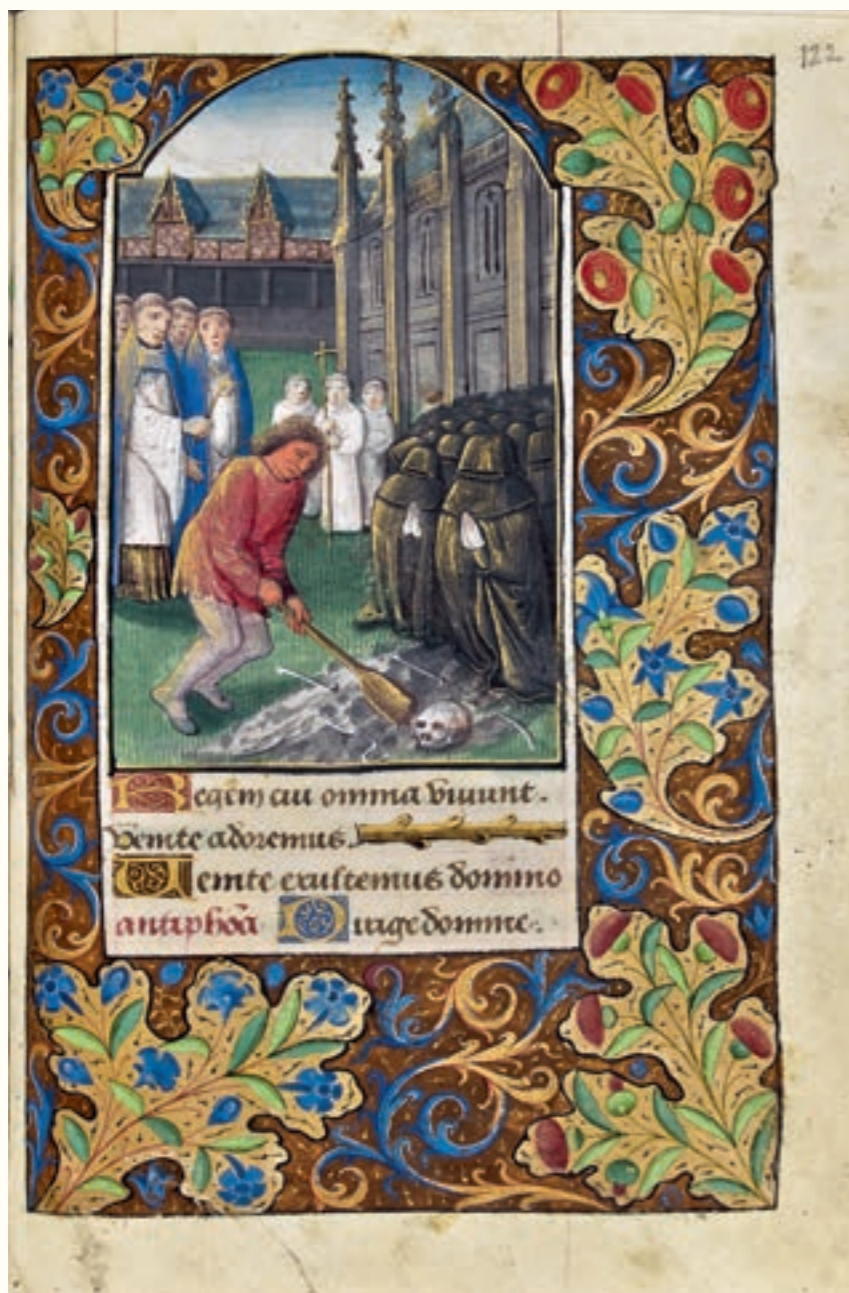 122
Regem cui omnia vivunt.
venite adoremus.
Venite exultemus domino
antiphoã Dirige domine.